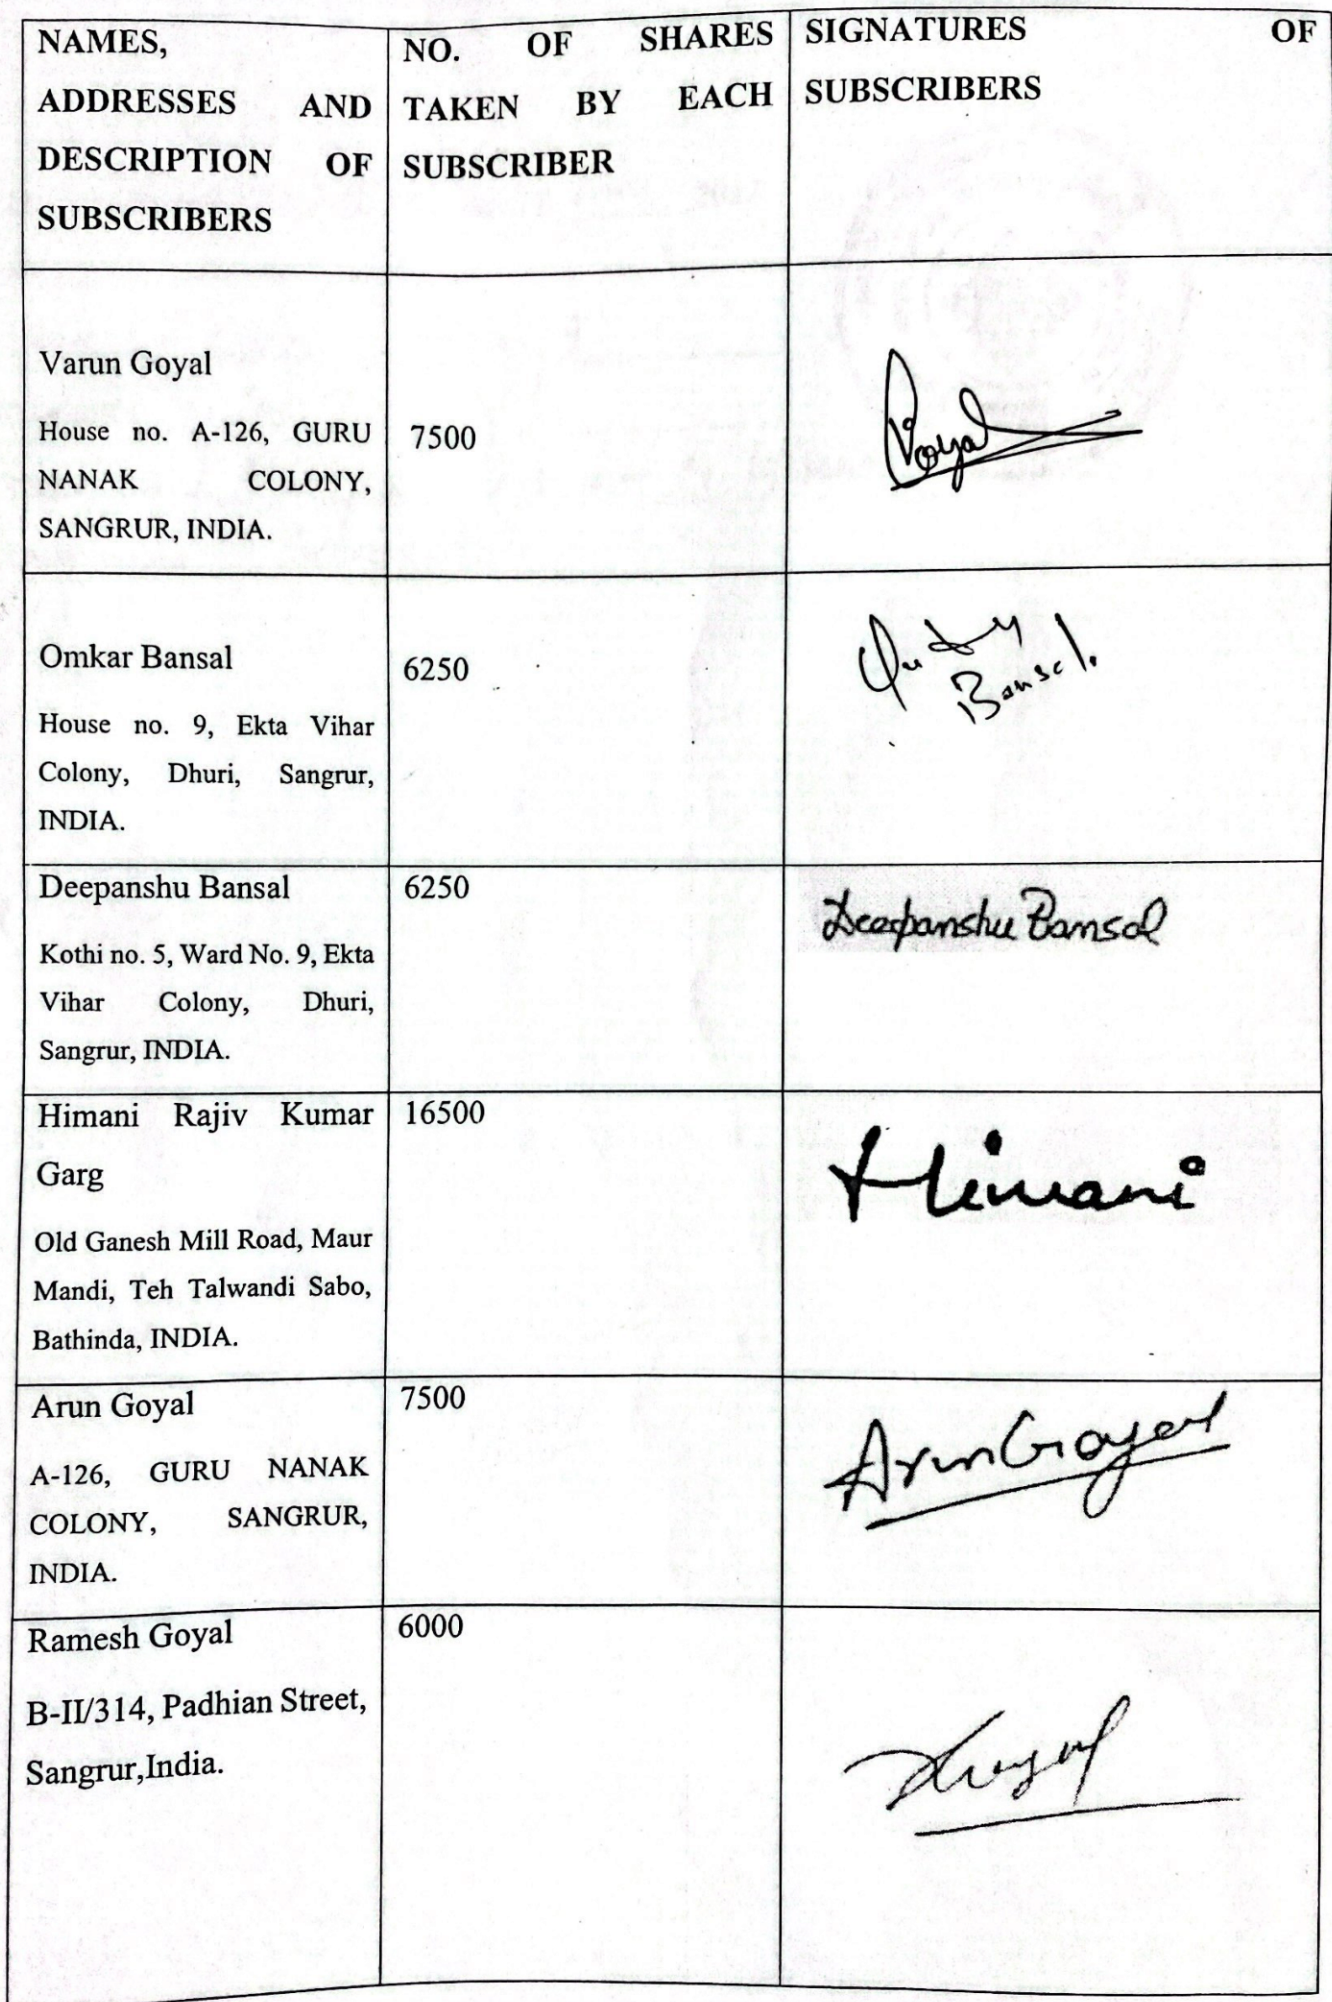 NAMES,
ADDRESSES AND
DESCRIPTION OF
SUBSCRIBERS
NO. OF SHARES
TAKEN BY EACH
SUBSCRIBER
SIGNATURES OF
SUBSCRIBERS
Varun Goyal
House no. A-126, GURU
NANAK COLONY,
SANGRUR, INDIA.
7500
Omkar Bansal
House no. 9, Ekta Vihar
Colony, Dhuri, Sangrur,
INDIA.
6250
Bansal.
Deepanshu Bansal
Kothi no. 5, Ward No. 9, Ekta
Vihar Colony, Dhuri,
Sangrur, INDIA.
6250
Deepanshu Bansal
Himani Rajiv Kumar
Garg
Old Ganesh Mill Road, Maur
Mandi, Teh Talwandi Sabo,
Bathinda, INDIA.
16500
Himani
Arun Goyal
A-126, GURU NANAK
COLONY, SANGRUR,
INDIA.
7500
Arun Goyal
Ramesh Goyal
B-II/314, Padhian Street,
Sangrur,India.
6000